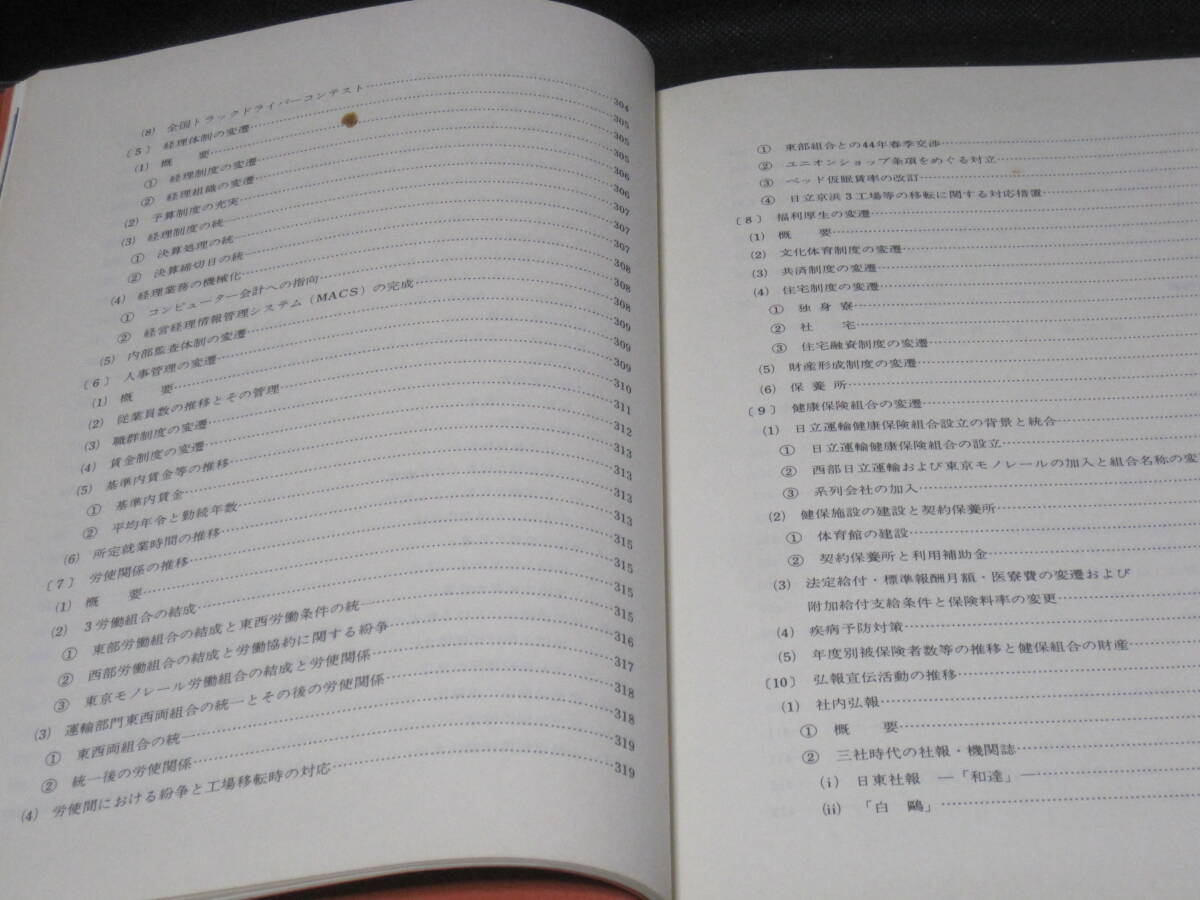 (8) 全国トラックドライバーコンテスト……304
〔5〕 経理体制の変遷……305
(1) 概　要……305
① 経理制度の変遷……305
② 経理組織の変遷……306
(2) 予算制度の充実……306
(3) 経理制度の統一……307
① 決算処理の統一……307
② 決算締切日の統一……307
(4) 経理業務の機械化……308
① コンピューター会計への指向……308
② 経営経理情報管理システム(MACS)の完成……308
(5) 内部監査体制の変遷……309
〔6〕 人事管理の変遷……309
(1) 概　要……309
(2) 従業員数の推移とその管理……310
(3) 職群制度の変遷……311
(4) 賃金制度の変遷……312
(5) 基準内賃金等の推移……313
① 基準内賃金……313
② 平均年令と勤続年数……313
(6) 所定就業時間の推移……313
〔7〕 労使関係の推移……315
(1) 概　要……315
(2) 3労働組合の結成……315
① 東部労働組合の結成と東西労働条件の統一……315
② 西部労働組合の結成と労働協約に関する紛争……316
③ 東京モノレール労働組合の結成と労使関係……317
(3) 運輸部門東西両組合の統一とその後の労使関係……318
① 東西両組合の統一……318
② 統一後の労使関係……319
(4) 労使間における紛争と工場移転時の対応……319
① 東部組合との44年春季交渉……
② ユニオンショップ条項をめぐる対立……
③ ベッド仮眠賃率の改訂……
④ 日立京浜3工場等の移転に関する対応措置……
〔8〕 福利厚生の変遷……
(1) 概　要……
(2) 文化体育制度の変遷……
(3) 共済制度の変遷……
(4) 住宅制度の変遷……
① 独身寮……
② 社　宅……
③ 住宅融資制度の変遷……
(5) 財産形成制度の変遷……
(6) 保養所……
〔9〕 健康保険組合の変遷……
(1) 日立運輸健康保険組合設立の背景と統合……
① 日立運輸健康保険組合の設立……
② 西部日立運輸および東京モノレールの加入と組合名称の変
③ 系列会社の加入……
(2) 健保施設の建設と契約保養所……
① 体育館の建設……
② 契約保養所と利用補助金……
(3) 法定給付・標準報酬月額・医寮費の変遷および
附加給付支給条件と保険料率の変更……
(4) 疾病予防対策……
(5) 年度別被保険者数等の推移と健保組合の財産……
〔10〕 弘報宣伝活動の推移……
(1) 社内弘報……
① 概　要……
② 三社時代の社報・機関誌……
(i) 日東社報 ―「和達」―……
(ii) 「白　鷗」……